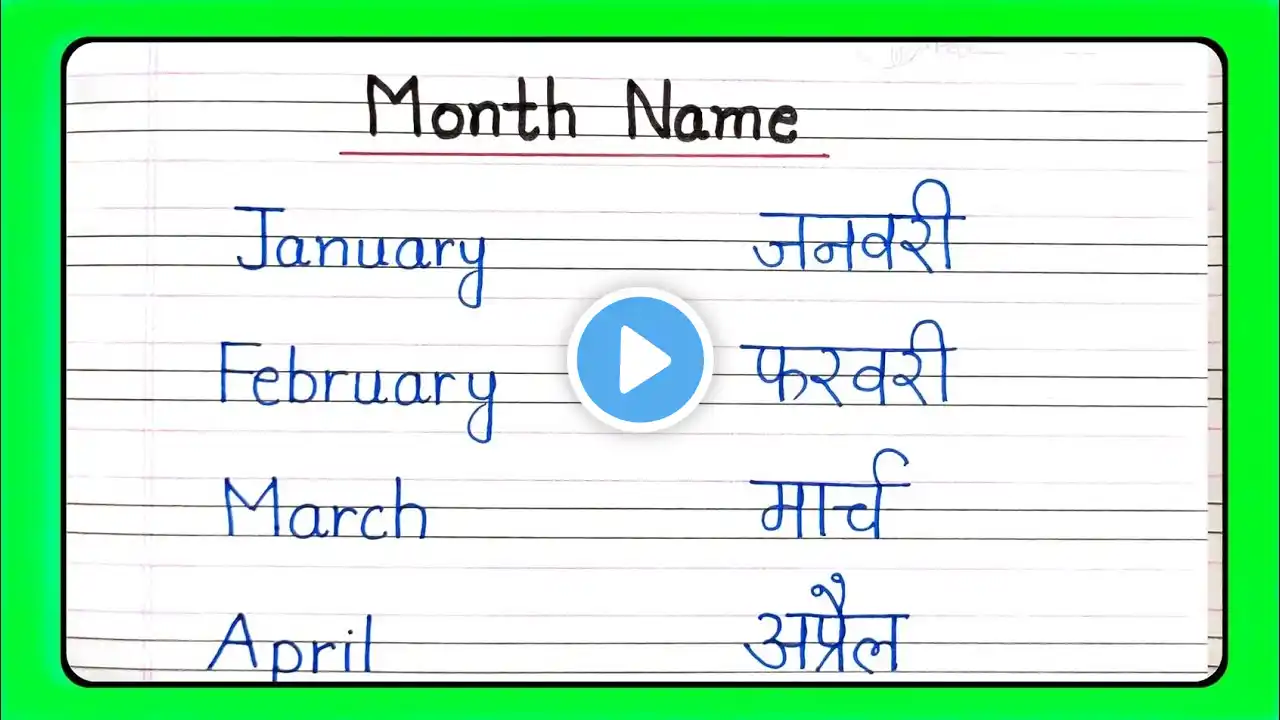 Month Name
January जनवरी
February फरवरी
March मार्च
April अप्रैल